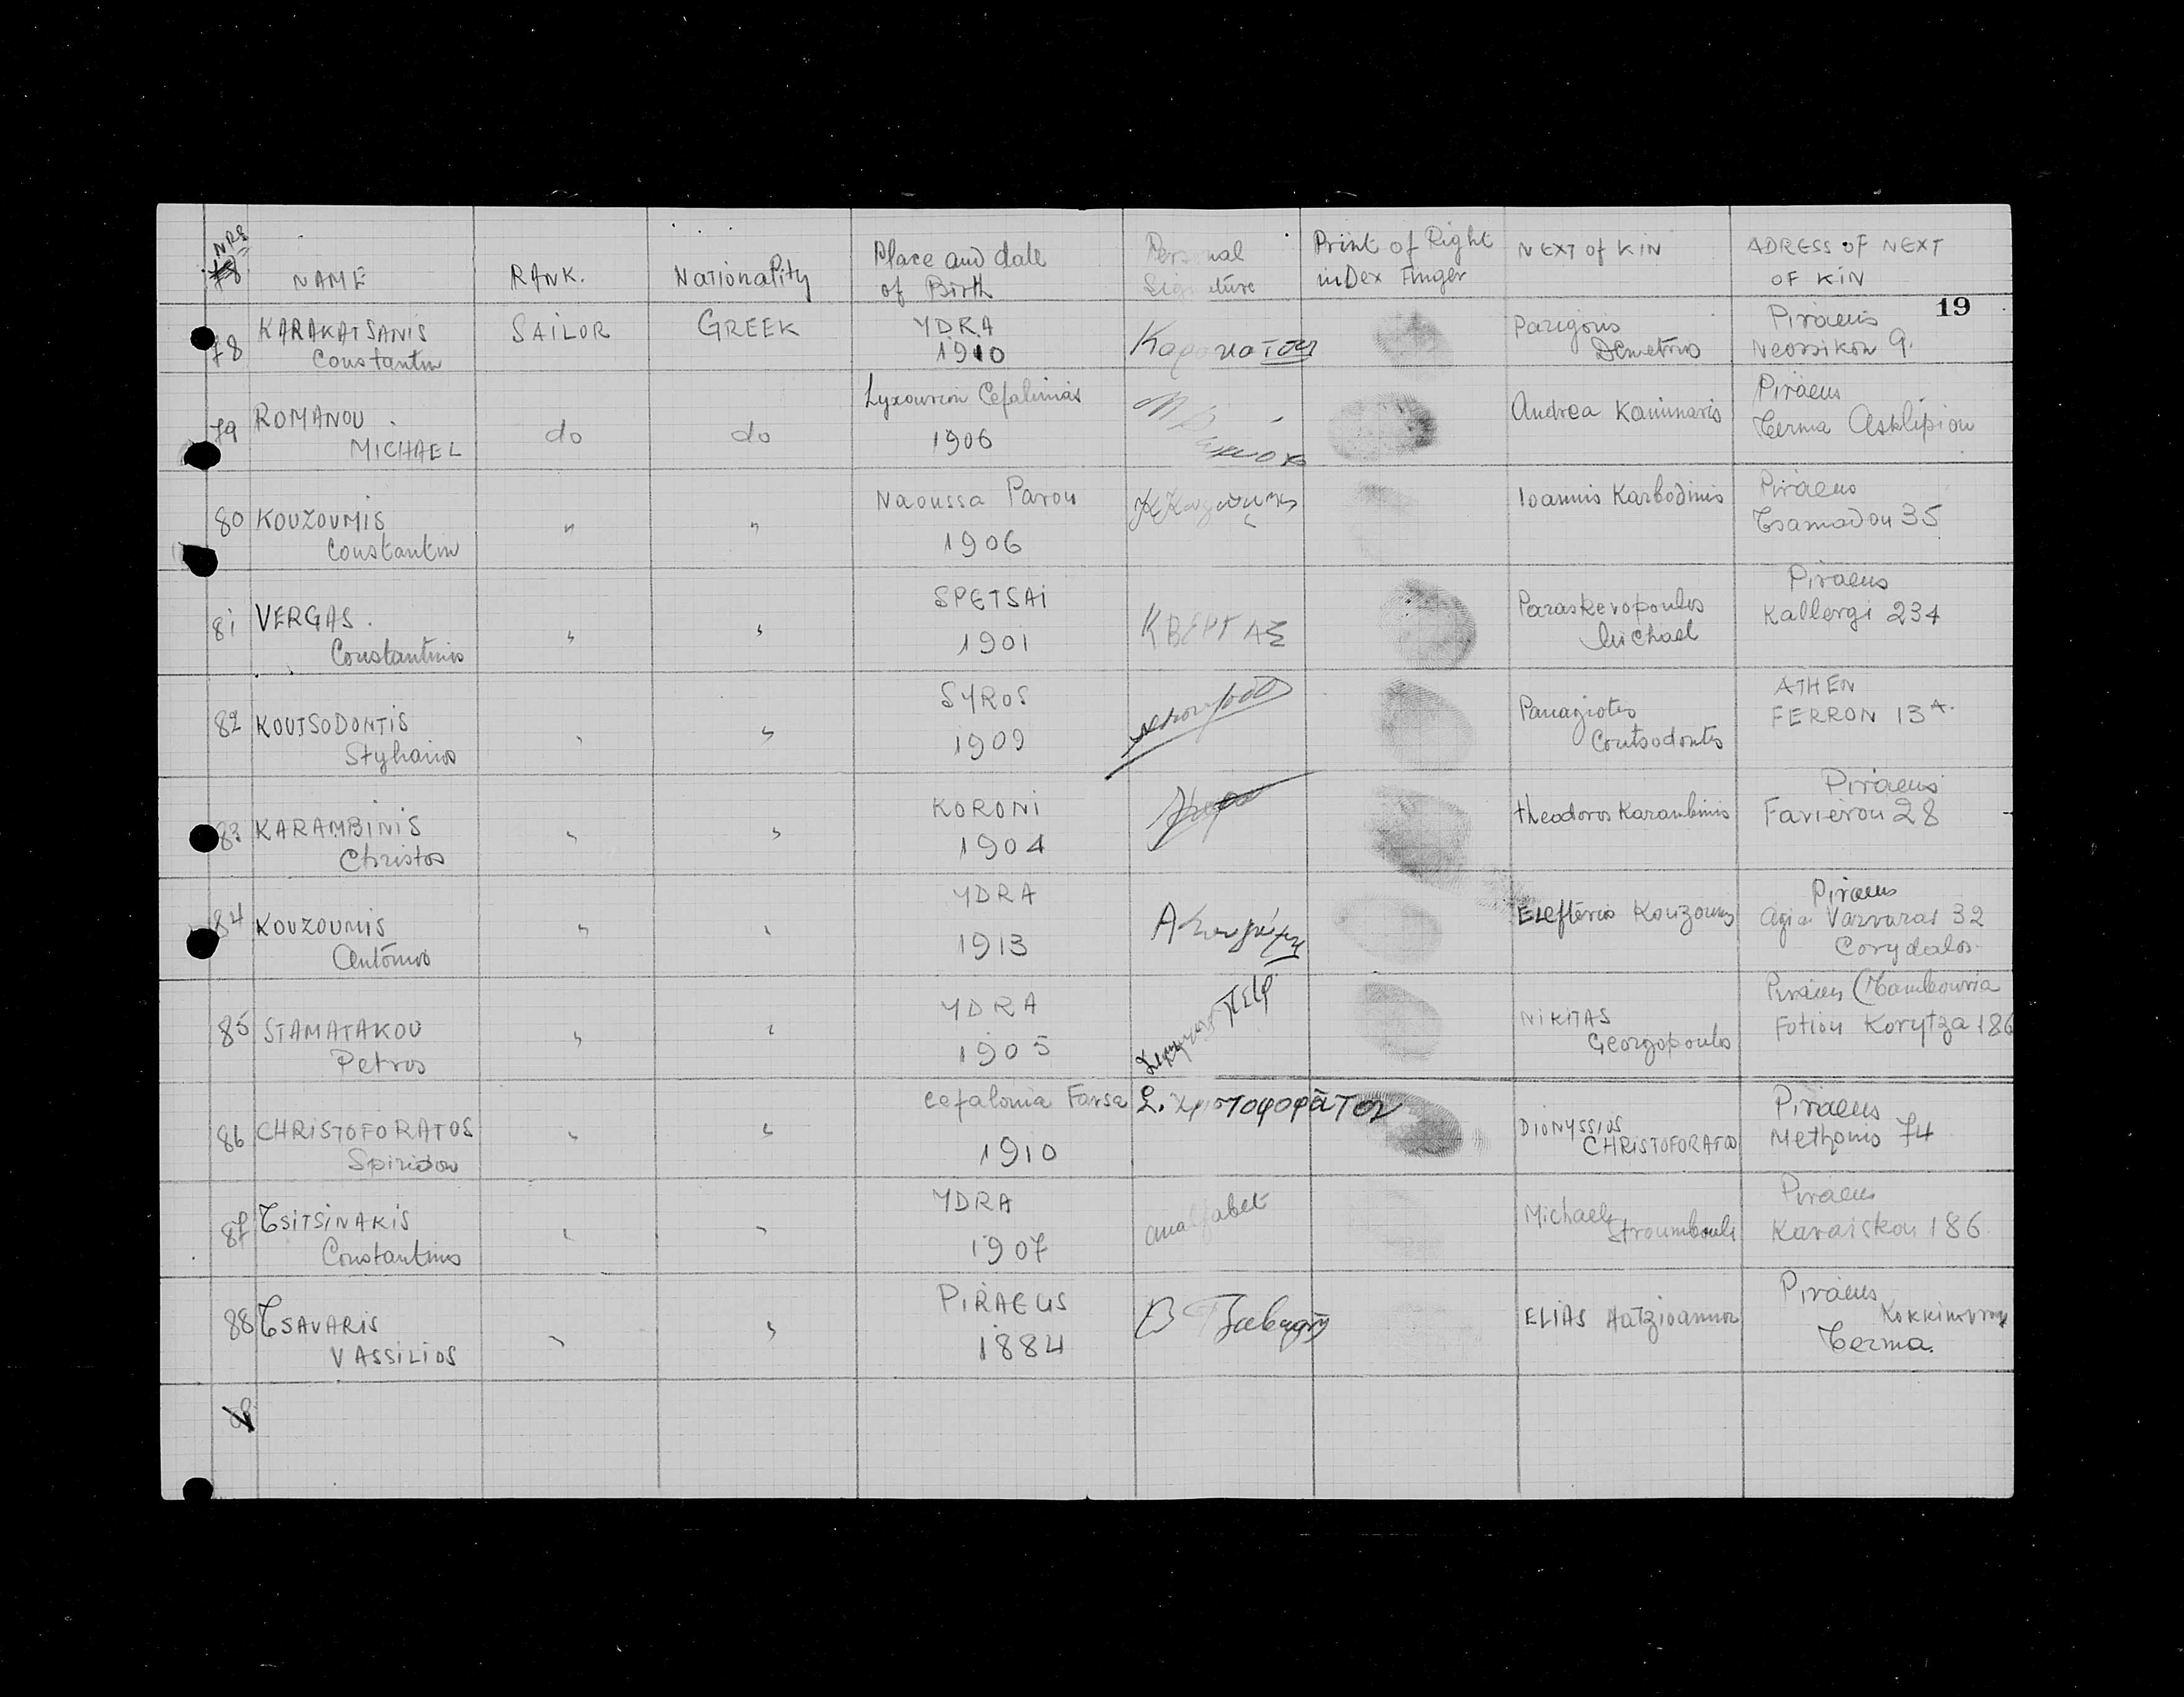 NRS
NAME RANK. Nationality Place and date of Birth Personal Signature Print of Right inDex Finger NEXT of KIN ADRESS OF NEXT OF KIN
19
78 KARAKATSANIS Constantin SAILOR GREEK YDRA 1910 Parigoris Demetrios Piraeus Neossikon 9.
79 ROMANOU MICHAEL do do Lyxourion Cefalinias 1906 Andrea Kaminaris Piraeus Terma Asklipiou
80 KOUZOUMIS Constantin " " Naoussa Parou 1906 Ioannis Karbodinis Piraeus Tsamadou 35
81 VERGAS. Constantinos " " SPETSAI 1901 Κ ΒΕΡΓΑΣ Paraskevopoulos Michael Piraeus Kallergi 234
82 KOUTSODONTIS Stylianos " " SYROS 1909 Panagiotis Coutsodontis ATHEN FERRON 13A.
83 KARAMBINIS Christos " " KORONI 1904 theodoros Karambinis Piraeus Favierou 28
84 KOUZOUMIS Antonios " " YDRA 1913 Eleftérios Kouzoumis Piraeus Agia Varvaras 32 Corydalos.
85 STAMATAKOU Petros " " YDRA 1905 NIKITAS Georgopoulos Piraeus (Tambouria Fotiou Korytza 186
86 CHRISTOFORATOS Spiridon " " Cefalonia Farsa 1910 Σ. Χριστοφοράτον DIONYSSIOS CHRISTOFORATOS Piraeus Methonis 74
87 TSITSINAKIS Constantinos " " YDRA 1907 analfabet Michael Stroumbouli Piraeus Karaiskou 186
88 TSAVARIS VASSILIOS " " PIRAEUS 1884 ELIAS Hatzioannou Piraeus Terma.